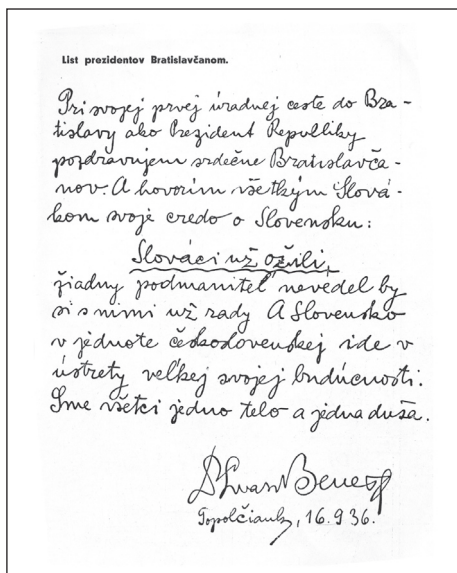 List prezidentov Bratislavčanom.
Pri svojej prvej úradnej ceste do Bra-
tislavy ako Prezident Republiky
pozdravujem srdečne Bratislavča-
nov. A hovorím všetkým Slová-
kom svoje credo o Slovensku:
Slováci už ožili,
žiadny podmaniteľ nevedel by
si s nimi už rady A Slovensko
v jednote československej ide v
ústrety veľkej svojej budúcnosti.
Sme všetci jedno telo a jedna duša.
Beneš
Topolčianky, 16.9 36.